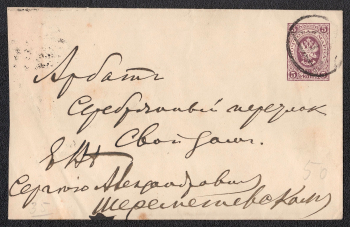 5
5 5
Арбатъ
Серебряный переулок
Свой домъ.
Е П
Сергѣю Александровичу
Шереметевскому
50